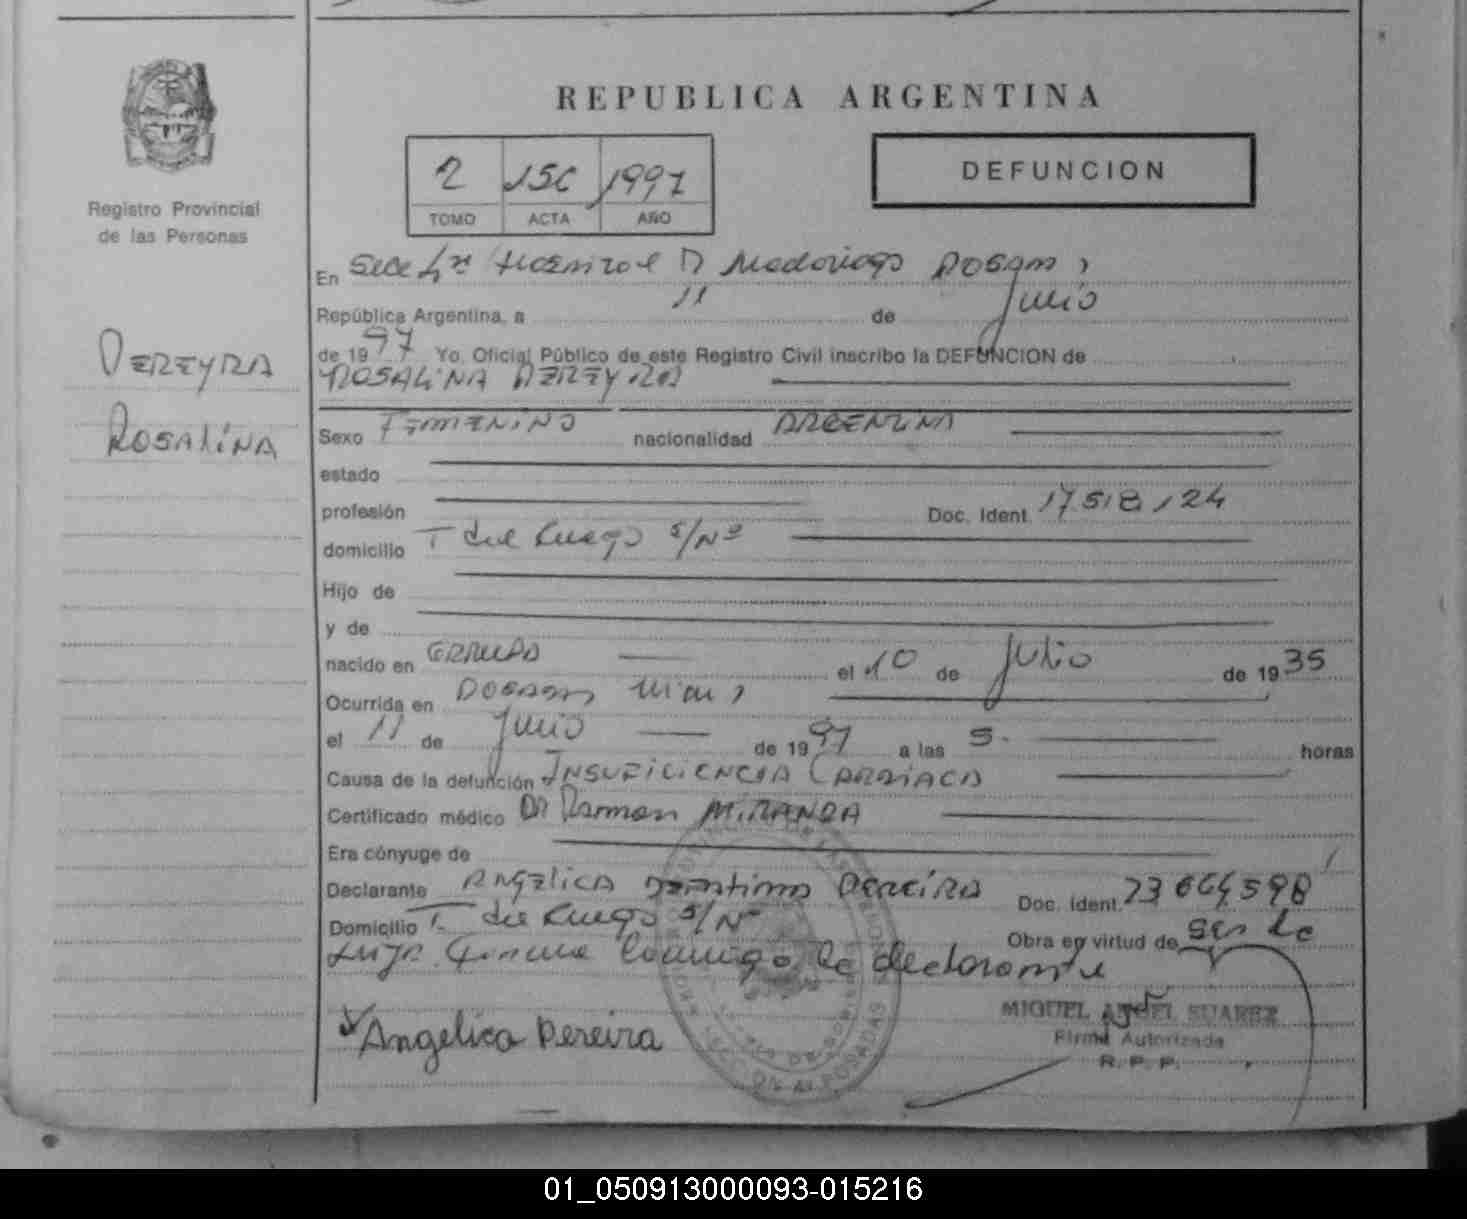 REPUBLICA ARGENTINA
DEFUNCION
2 156 1997
TOMO ACTA AÑO
Registro Provincial
de las Personas
PEREYRA
ROSALINA
En Secc 1ra Hospital D Madariaga Posadas
República Argentina, a 11 de Julio
de 1997 Yo, Oficial Público de este Registro Civil inscribo la DEFUNCION de
ROSALINA PEREYRA
Sexo FEMENINO nacionalidad ARGENTINA
estado
profesión Doc. Ident. 17 518 124
domicilio T del Fuego S/Nº
Hijo de
y de
nacido en GARUPA el 10 de Julio de 1935
Ocurrida en Posadas Mnes
el 11 de Julio de 1997 a las 5. horas
Causa de la defunción INSUFICIENCIA CARDIACA
Certificado médico Dr Ramon MIRANDA
Era cónyuge de
Declarante ANGELICA PEREIRA Doc. Ident. 23 664 598
Domicilio T. del Fuego S/Nº Obra en virtud de ser la
hija. Firma conmigo la declarante
Angelica Pereira
MIGUEL ANGEL SUAREZ
Firma Autorizada
R. P. P.
01_050913000093-015216